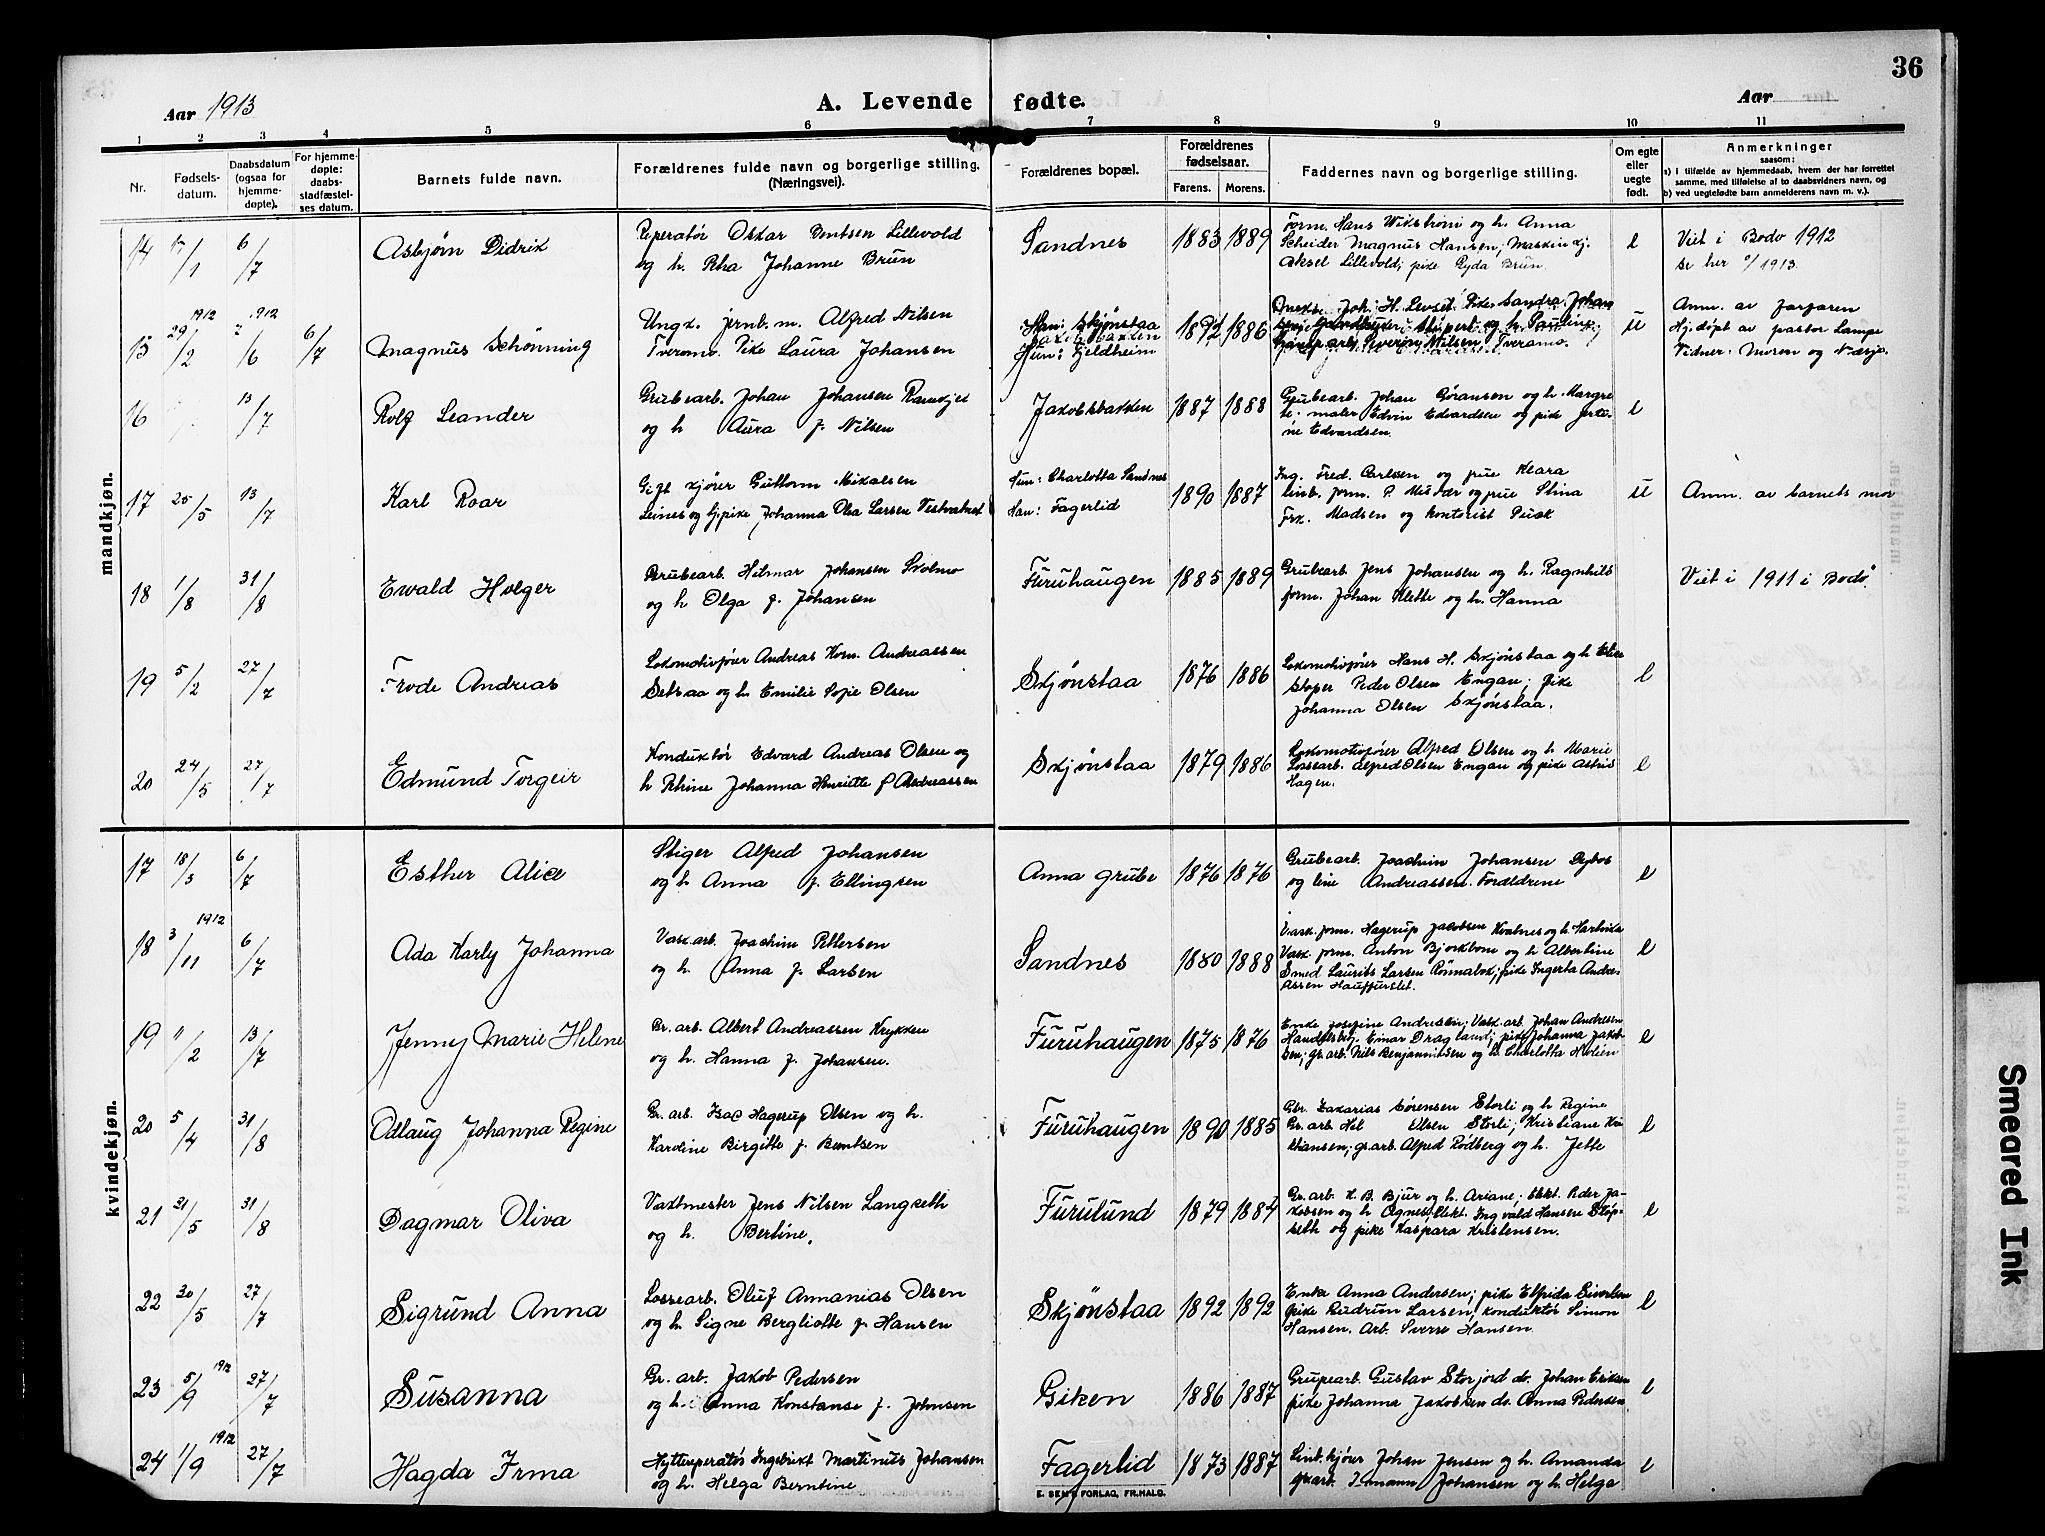 36
Aar 1913
A. Levende fødte.
Aar
1 2 3 4 5 6 7 8 9 10 11
Nr.
Fødsels-
datum.
Daabsdatum
(ogsaa for
hjemme-
døpte).
For hjemme-
døpte:
daabs-
stadfæstel-
ses datum.
Barnets fulde navn.
Forældrenes fulde navn og borgerlige stilling.
(Næringsvei).
Forældrenes bopæl.
Forældrenes
fødselsaar.
Farens. Morens.
Faddernes navn og borgerlige stilling.
Om egte
eller
uegte
født.
Anmerkninger
saasom:
a) i tilfælde av hjemmedaab, hvem der har forrettet
samme, med tilføielse af to daabsvidners navn, og
b) ved uegtefødte barn anmelderens navn m. v.).
mandkjøn.
14 6/7 Asbjørn Didrik
Reperatør Oskar Bentsen Lillevold
og h. Rha Johanne Brun
Sandnes 1883 1889
Form. Hans Wikstrøm og h. Anna
Scheider Magnus Hansen; Maskinkj.
Aksel Lillevold; pike Gyda Brun.
e
Viet i Bodø 1912
se her 1913
15 29/2 1912 1912 /6 6/7 Magnus Schønning
Ungk. jernb.m. Alfred Nilsen
Tveramo. Pike Laura Johansen
Han: Skjønstaa
Hun: Fjeldheim
1892 1886
Sandra Johan
Nilsen Tveramo.
u
Anm. av farfaren
Hj.døpt av pastor Lampe
Vidner: Moren og
16 13/7 Rolf Leander
Grubearb. Johan Johansen
og h Aura f. Nilsen
Jakobsbakken 1887 1888
Grubearb. Johan Gøransen og h. Margre
te. maler Edvin Edvardsen og pike
ne Edvardsen.
e
17 25/5 13/7 Karl Roar
Gift kjører Guttorm Mikalsen
Leines og Gpike Johanna Olsa Larsen Vestvatnet
Hun: Charlotta Sandnes
Han: Fagerlid
1890 1887
Ing. Fred. Carlssen og frue Klara
linb. form. P. og frue Stina
Frk. Madsen og kontorist
u
Anm. av barnets mor
18 1/8 31/8 Ewald Holger
Grubearb. Hilmar Johansen
og h Olga f. Johansen
Furuhaugen 1885 1889
Grubearb Jens Johansen og h. Ragnhild
form. Johan Klette og h. Hanna
Viet i 1911 i Bodø
19 5/2 27/7 Frode Andreas
Lokomotivfører Andreas Korn. Andreassen
Setsaa og h. Emilie Sofie Olsen
Skjønstaa 1876 1886
Lokomotivfører Hans H. Skjønstaa og h
Peder Olsen Engan; pike
Johanna Olsen Skjønstaa.
e
20 24/5 27/7 Edmund Torgeir
Konduktør Edvard Andreas Olsen og
h Johanna Henriette f Andreassen
Skjønstaa 1879 1886
Lokomotivfører Alfred Olsen og h Marie
Lossearb. Alfred Olsen Engan og pike Astrid
Hagen.
e
kvindekjøn.
17 18/3 6/7 Esther Alice
Stiger Alfred Johansen
og h Anna f. Ellingsen
Anna grube 1876 1876
Grubearb. Joachim Johansen
og line Andreassen. Forældrene
e
18 3/11 1912 6/7 Ada Karly Johanna
Vask.arb. Joachim Pettersen
og h. Anna f. Larsen
Sandnes 1880 1888
Vask. form. Hagerup Jacobsen og h
Vask. form. Anton og h Albertine
Smed Laurits Larsen pike Ingerta Andre-
assen
e
19 /2 13/7 Jenny Marie Helene
Gr. arb. Albert Andreassen
og h. Hanna f. Johansen.
Furuhaugen 1875 1876
Enke Josefine Andersen; Vask. arb. Johan Andresen
Einar pike Johanna Jakob-
sen; gr. arb. Nils Benjaminsen og h. Charlotta
e
20 5/4 31/8 Odlaug Johanna Regine
Gr. arb. Isac Hagerup Olsen og h.
Kardine Birgitte f. Berntsen
Furuhaugen 1890 1885
Zakarias Sørensen Storli og h Regine
Gr. arb Olsen Storli; Kristiane Kri
stiansen; gr.arb. Alfred Rødberg og h. Jette
e
21 31/5 31/8 Dagmar Oliva
Vaktmester Jens Nilsen Langseth
og h. Bertine.
Furulund 1879 1884
Gr. arb. K. B. Bjur og h. Ariane; Elekt. Peder Ja-
kobsen og h Agnes; Elekt. Ingvald Hansen
seth og pike Kaspara Kristensen.
e
22 30/5 27/7 Sigrund Anna
Lossearb. Oluf Annanias Olsen
og h. Signe Bergliotte f. Hansen
Skjønstaa 1892 1892
Enke Anna Andersen; pike Elfrida
pike Gudrun Larsen, konduktør Simon
Hansen. Arb. Sverre Hansen
e
23 5/9 1912 27/7 Susanna
Gr. arb. Jakob Pedersen
og h. Anna Konstanse f. Johnsen
Giken 1886 1887
Grubearb. Gustav Storjord do. Johan Eriksen
pike Johanna Jakobsen do. Anna Pedersen
e
24 1/9 1912 27/7 Hagda Irma
Hytteoperatør Ingebrikt Martinus Johansen
og h. Helga Berntine
Fagerlid 1873 1887
Linb.kjører Johan Jensen og h. Amanda
Johansen og h. Helga
e
E. SEM'S FORLAG, FR.HALD.
Smeared Ink